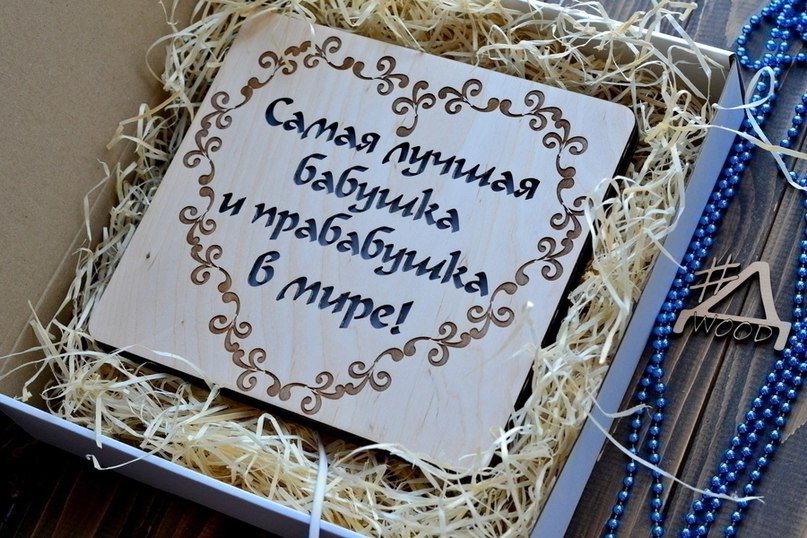 Самая лучшая
бабушка
и прабабушка
в мире!
#A
WOOD